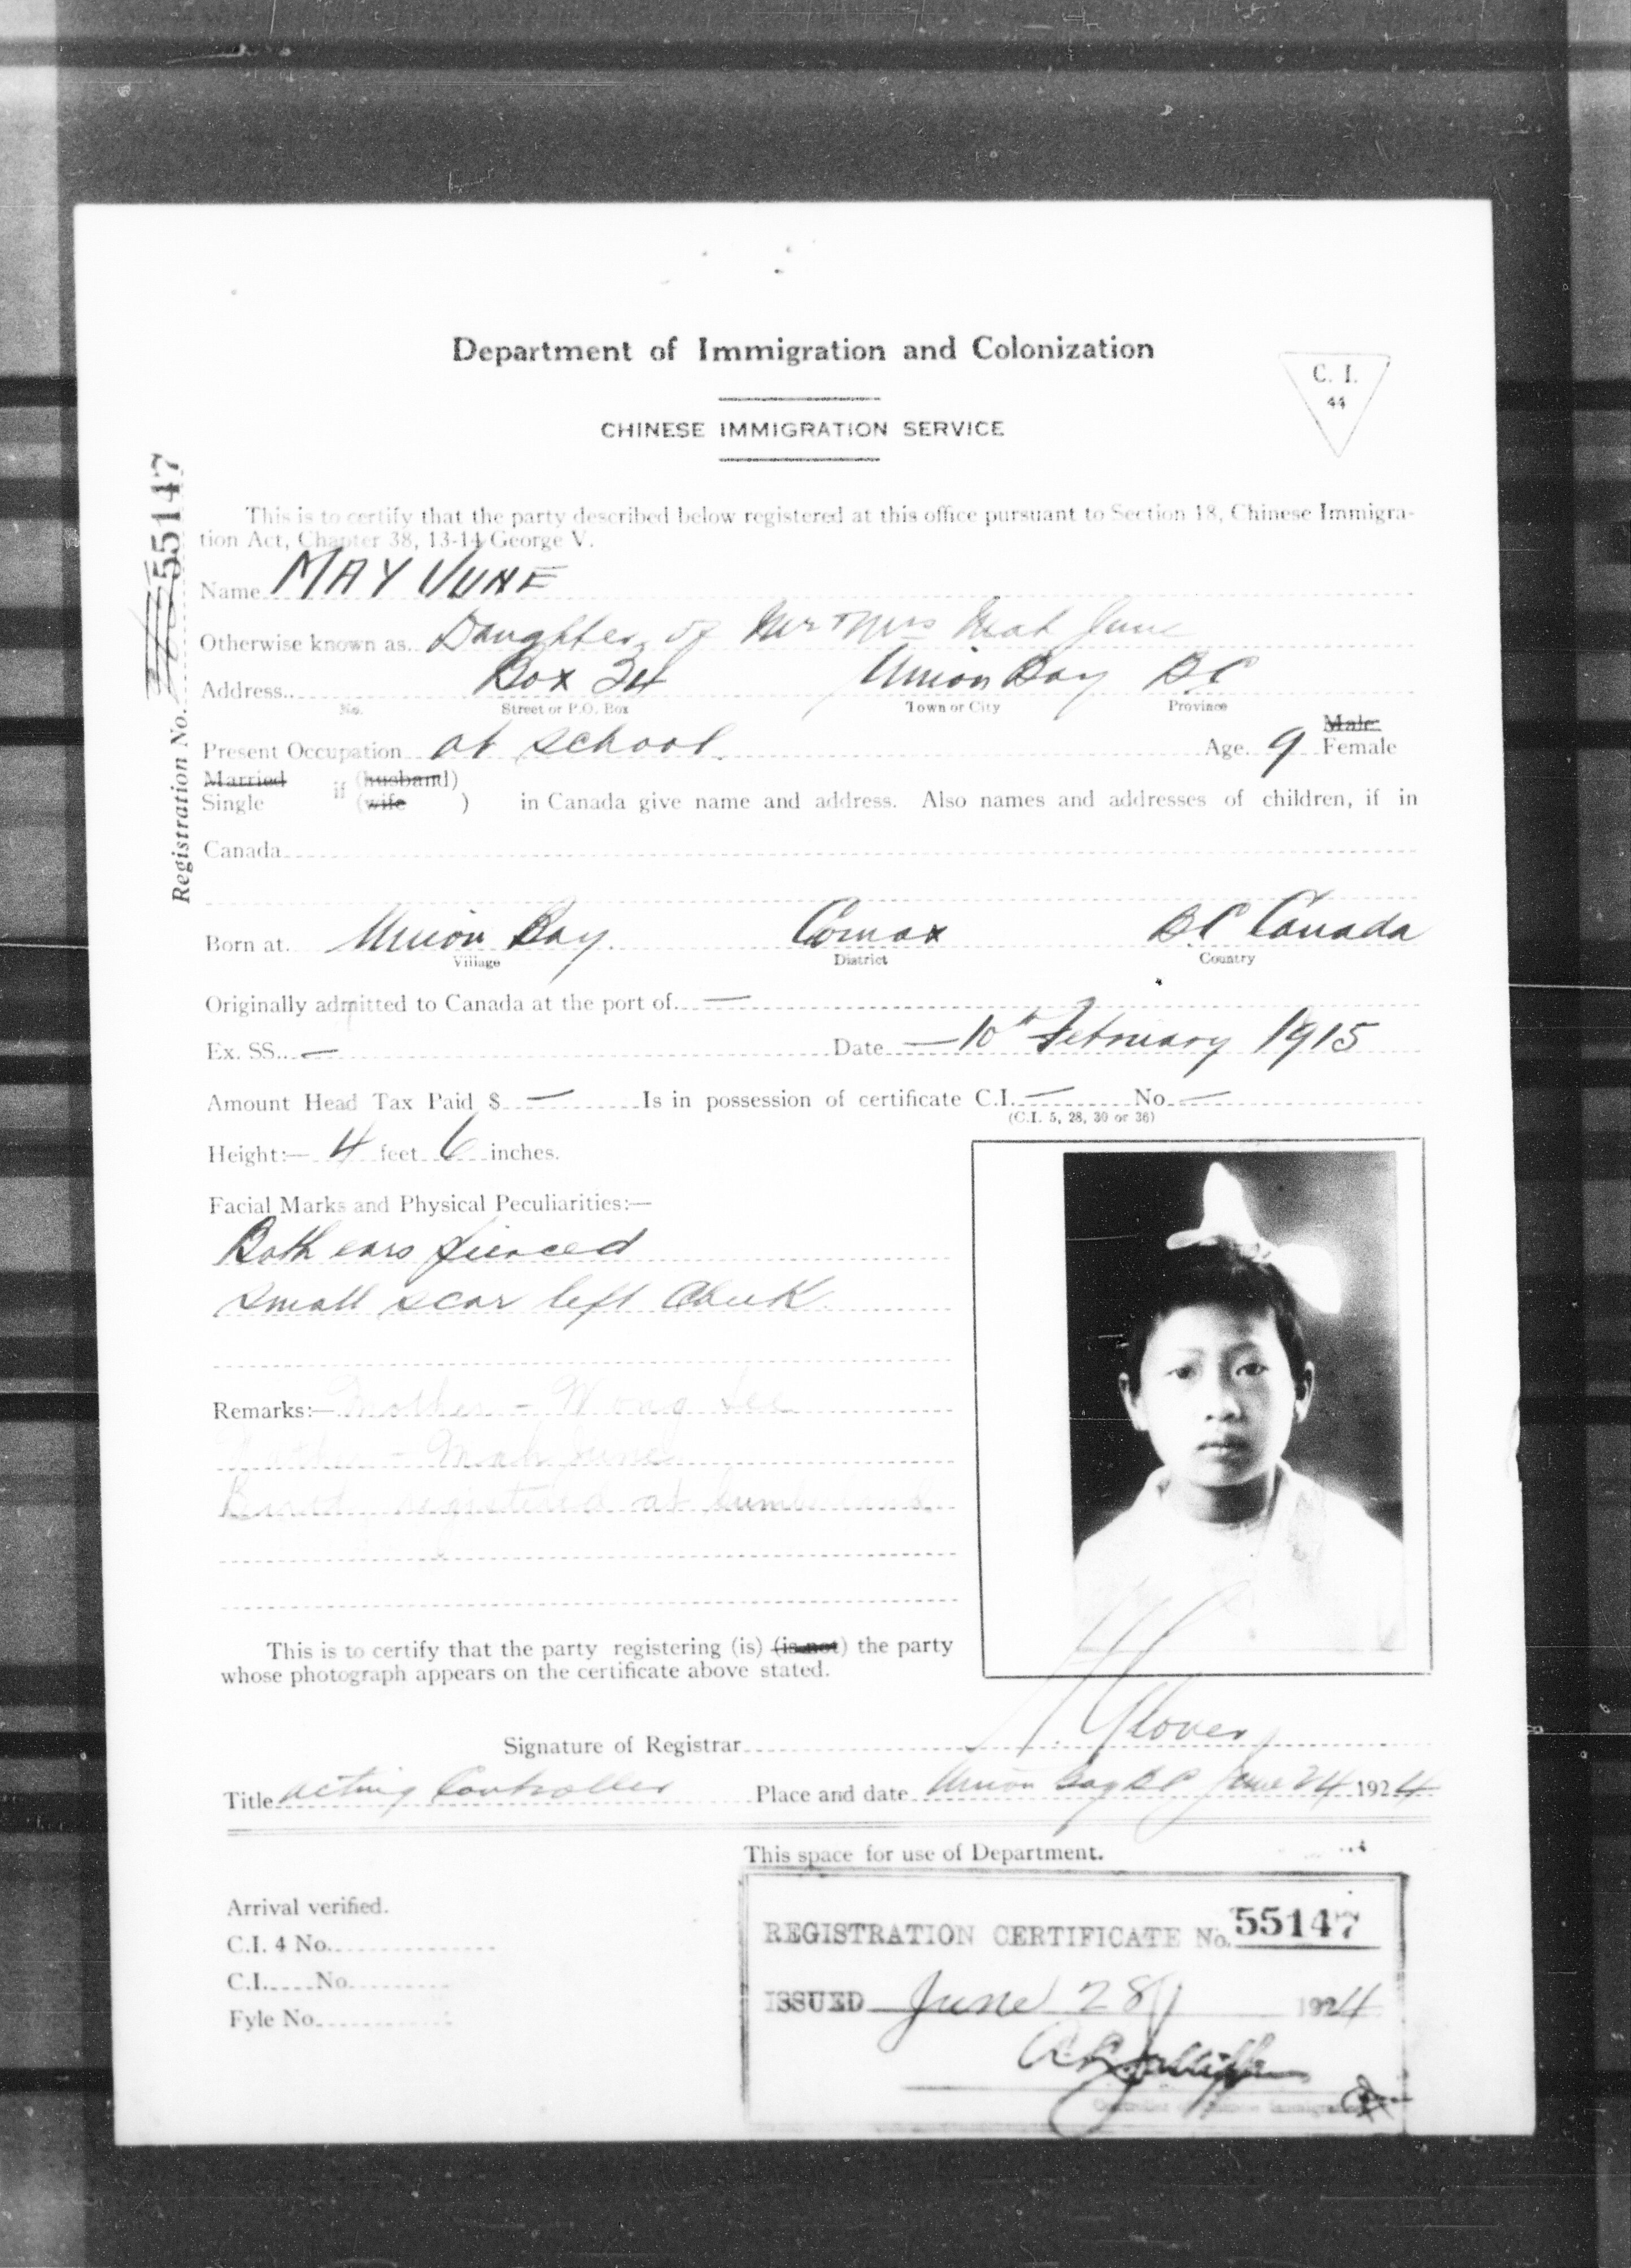 Department of Immigration and Colonization
C. I.
44
CHINESE IMMIGRATION SERVICE
Registration No. 55147
This is to certify that the party described below registered at this office pursuant to Section 18, Chinese Immigra-
tion Act, Chapter 38, 13-14 George V.
Name MAY JUNE
Otherwise known as Daughter of Mr & Mrs Mah June
Address Box 34 Union Bay BC
No. Street or P.O. Box Town or City Province
Present Occupation at school Age 9 Male Female
Married Single if (husband) (wife ) in Canada give name and address. Also names and addresses of children, if in
Canada
Born at Union Bay Comox BC Canada
Village District Country
Originally admitted to Canada at the port of —
Ex. SS. — Date — 10th February 1915
Amount Head Tax Paid $ — Is in possession of certificate C.I. — No. —
(C.I. 5, 28, 30 or 36)
Height:— 4 feet 6 inches.
Facial Marks and Physical Peculiarities:—
Both ears pierced
Small scar left cheek
Remarks:— Mother - Wong See
Father - Mah June
registered at
This is to certify that the party registering (is) (is not) the party
whose photograph appears on the certificate above stated.
Signature of Registrar Glover
Title Acting Controller Place and date Union Bay BC June 24 1924
This space for use of Department.
Arrival verified.
C.I. 4 No.
C.I. No.
Fyle No.
REGISTRATION CERTIFICATE No. 55147
ISSUED June 28 1924